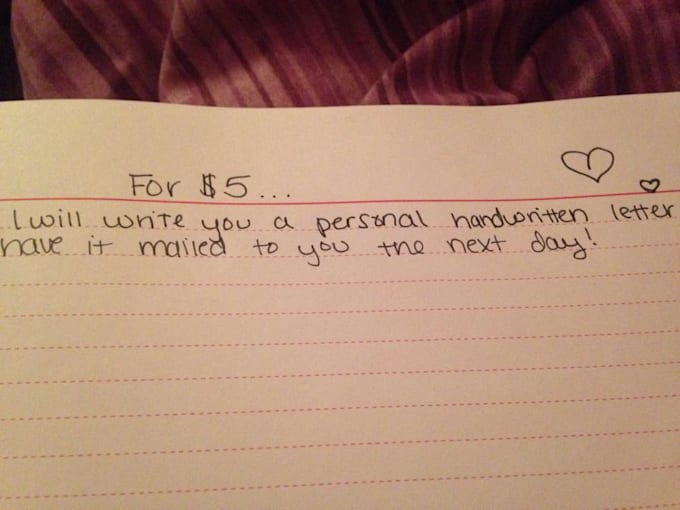 For $5...
I will write you a personal handwritten letter
have it mailed to you the next day!